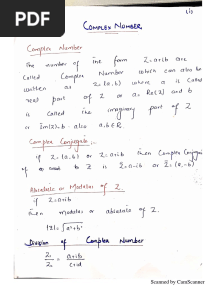 PDF
COMPLEX NUMBER
Complex Number
The number of the form Z=a+ib are
Called Complex Number which can also be
written as Z=(a,b) where a is called
real part of Z or a=Re(Z) and b
is called the imaginary part of Z
or Im(Z)=b also a,b∈R
Complex Conjugate:-
if Z=(a,b) or Z=a+ib then Complex Conjugate
of to Z is Z̄=a-ib or Z̄=(a,-b)
Absolute or Modulus of Z.
if Z=a+ib
then modulus or absolute of Z.
|Z|=√a²+b²
Division of Complex Number
Z₁/Z₂ = a+ib/c+id
Scanned by CamScanner